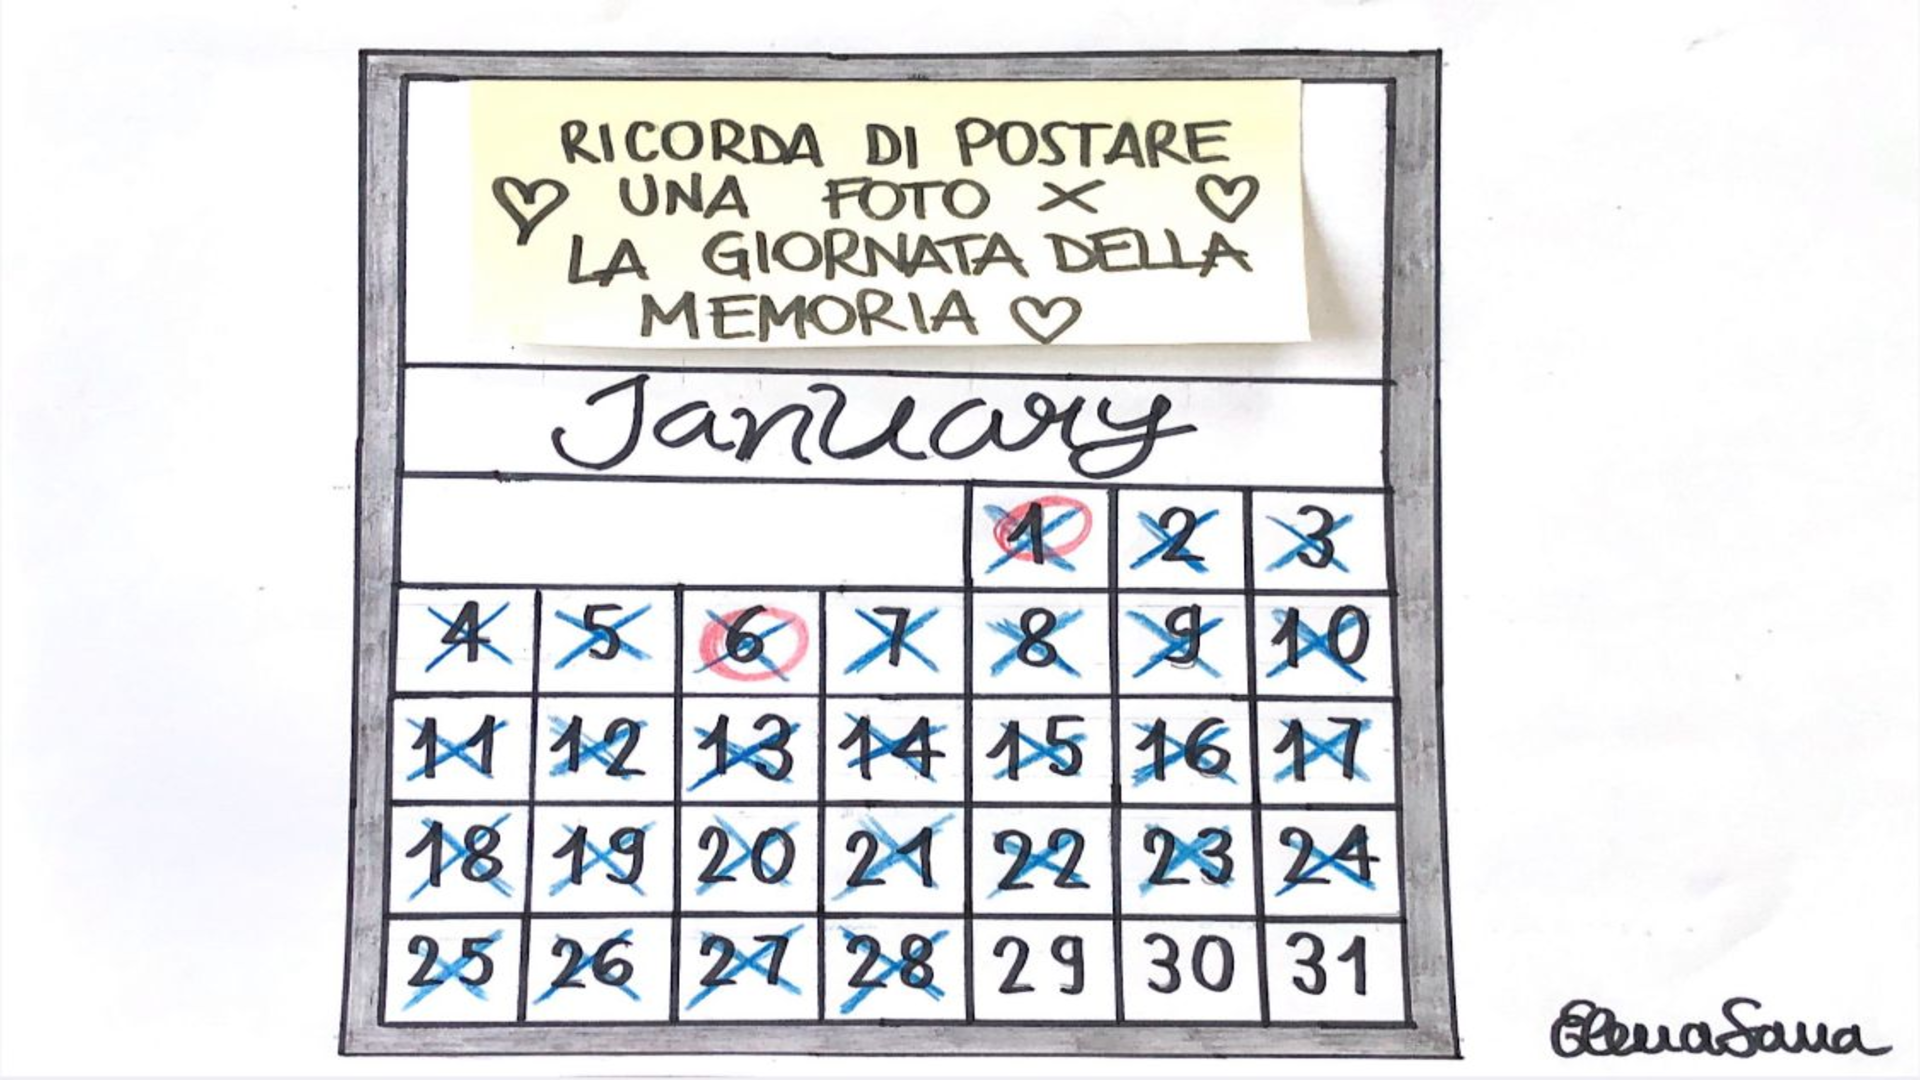 RICORDA DI POSTARE
♡ UNA FOTO X ♡
LA GIORNATA DELLA
MEMORIA ♡
January
1 2 3
4 5 6 7 8 9 10
11 12 13 14 15 16 17
18 19 20 21 22 23 24
25 26 27 28 29 30 31
ElenaSana